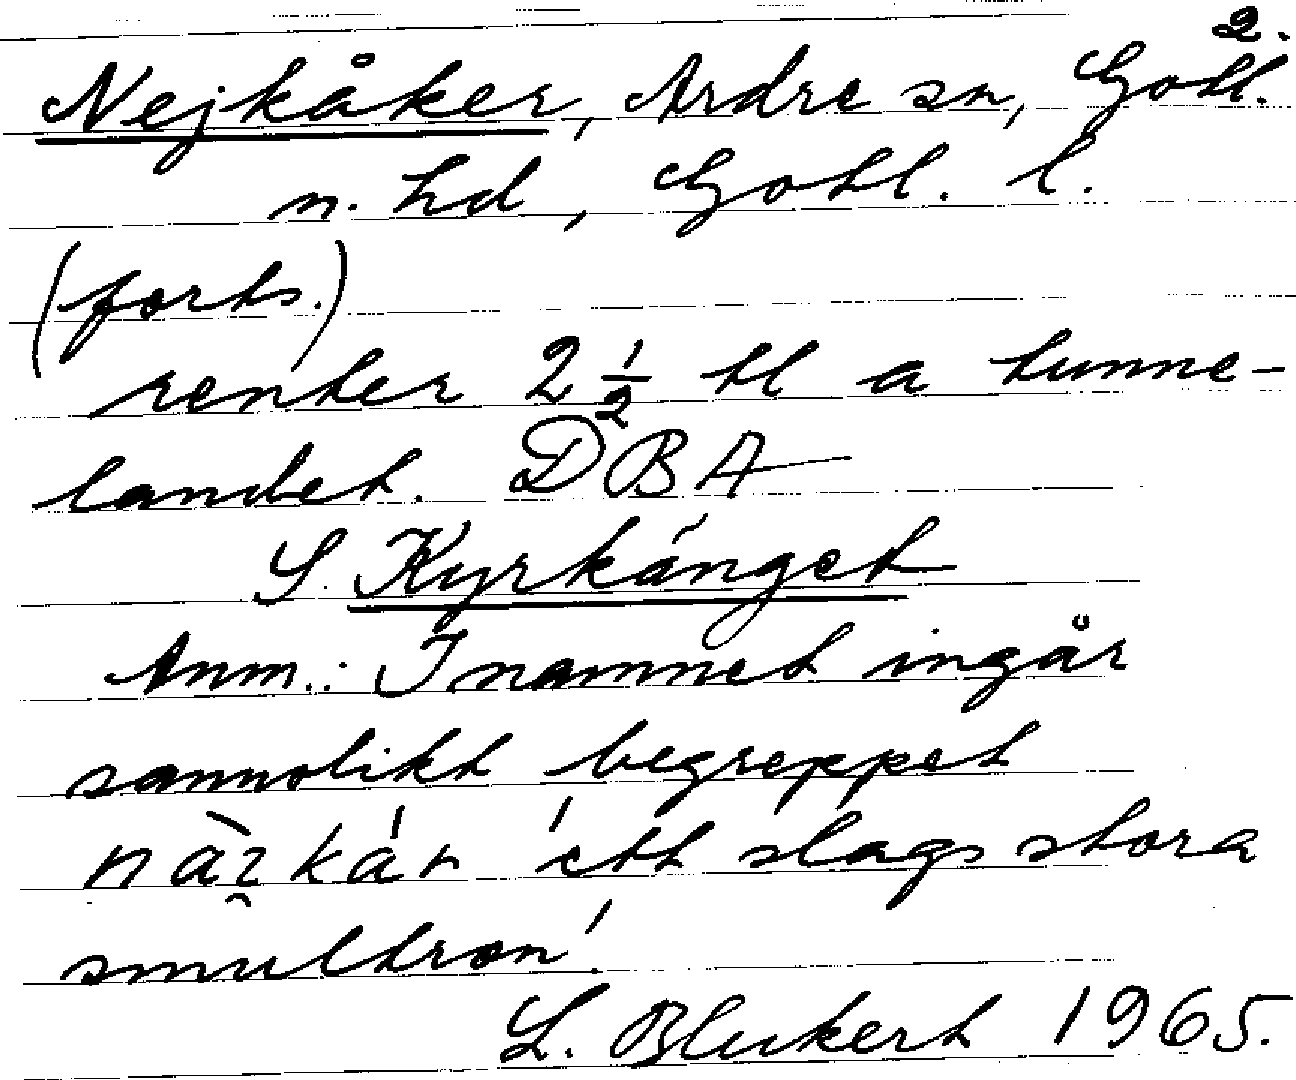 2.
Nejkåker, Ardre sn, Gotl.
n. hd, Gotl. l.
(forts.)
renter 2 1/2 tl a tunne-
landet. DBA
S. Kyrkänget
Anm.: I namnet ingår
sannolikt begreppet
'ett slags stora
smultron'.
L. Blukert 1965.